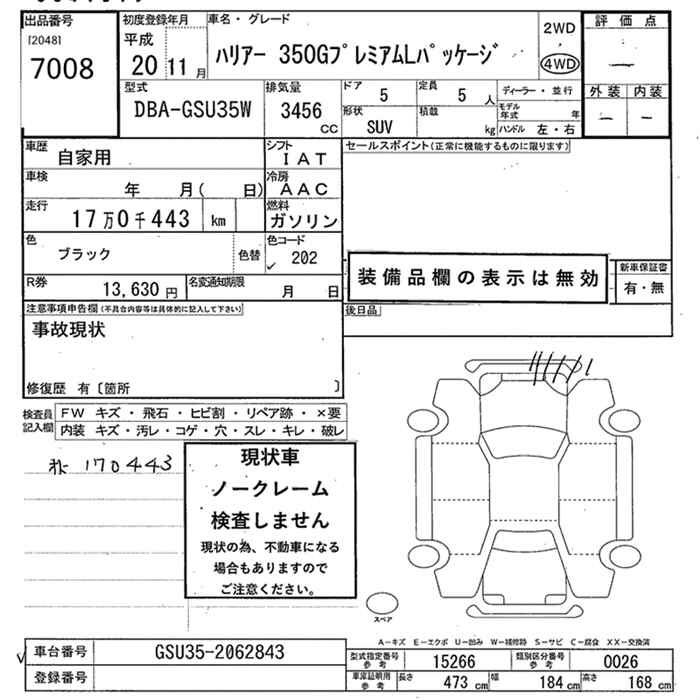 出品番号
[2048]
7008
初度登録年月
平成
20 11 月
車名・グレード
ハリアー 350GプレミアムLパッケージ
2WD
4WD
評価点
―
外装 内装
― ―
型式
DBA-GSU35W
排気量
3456
cc
ドア
5
定員
5 人
形状
SUV
積載
kg
ディーラー・並行
モデル年式 年
ハンドル 左・右
車歴
自家用
シフト
IAT
車検
年 月( 日)
冷房
AAC
走行
17万0千443 km
燃料
ガソリン
色
ブラック
色替
色コード
✓ 202
R券
13,630 円
名変通知期限
月 日
セールスポイント(正常に機能するものに限ります)
装備品欄の表示は無効
新車保証書
有・無
後日品
注意事項申告欄(不具合内容等は具体的に記入して下さい)
事故現状
修復歴 有〔箇所 〕
検査員記入欄
FW キズ・飛石・ヒビ割・リペア跡・×要
内装 キズ・汚レ・コゲ・穴・スレ・キレ・破レ
170443
現状車
ノークレーム
検査しません
現状の為、不動車になる
場合もありますので
ご注意ください。
スペア
A―キズ E―エクボ U―凹み W―補修跡 S―サビ C―腐食 XX―交換済
✓ 車台番号
GSU35-2062843
登録番号
型式指定番号参考
15266
類別区分番号参考
0026
車庫証明用参考
長さ 473 cm 幅 184 cm 高さ 168 cm